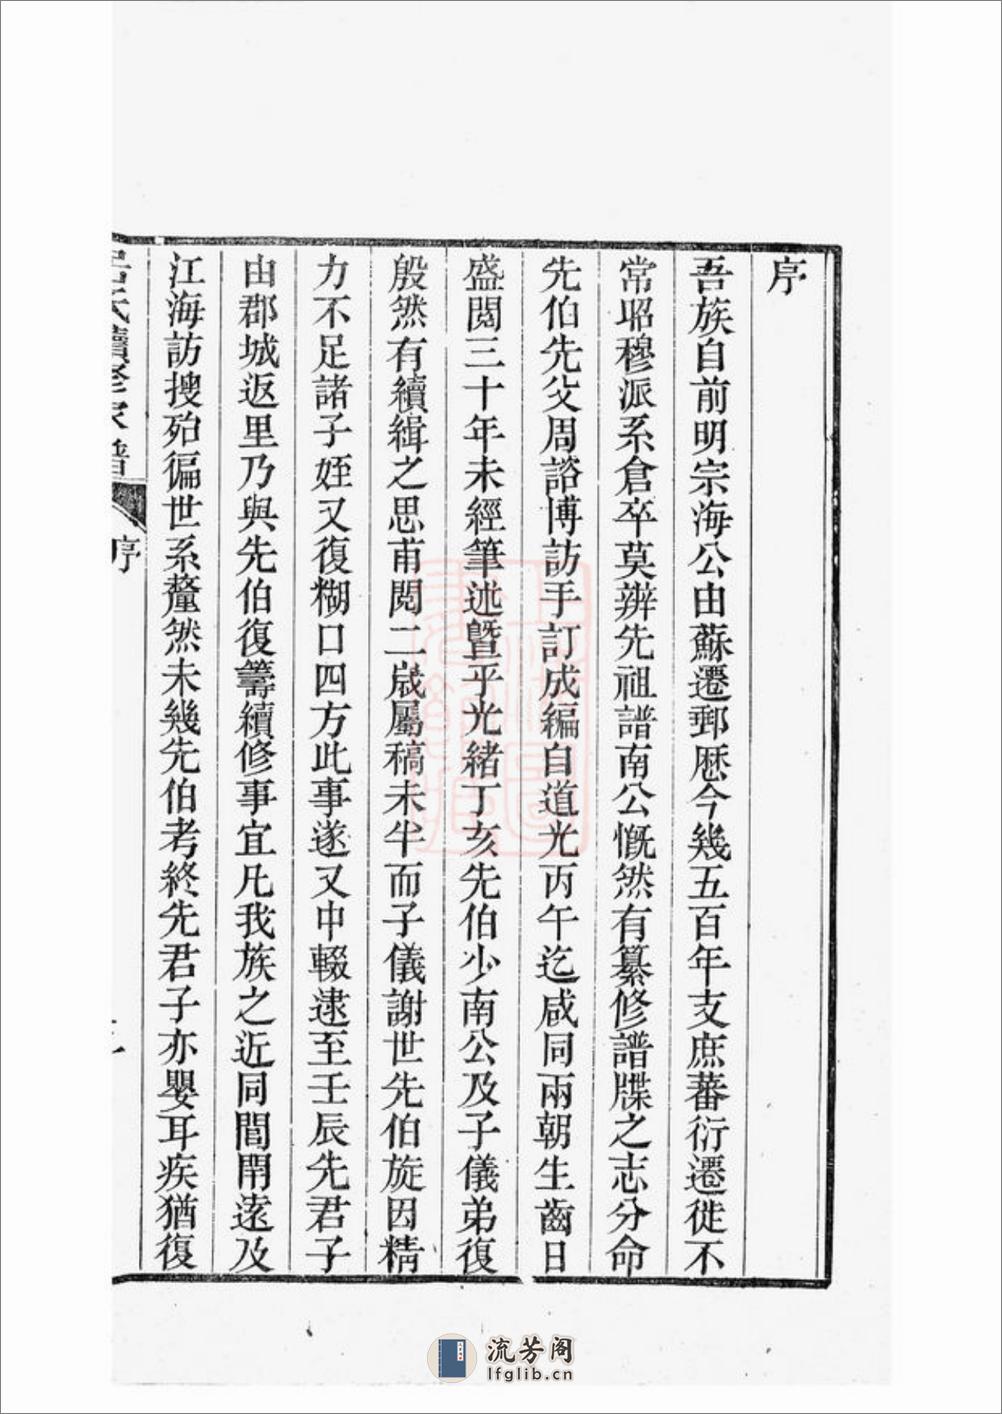 序
吾族自前明宗海公由蘇遷郵厯今幾五百年支庶蕃衍遷徙不
常昭穆派系倉卒莫辨先祖譜南公慨然有纂修譜牒之志分命
先伯先父周諮博訪手訂成編自道光丙午迄咸同兩朝生齒日
盛閱三十年未經筆述暨乎光緒丁亥先伯少南公及子儀弟復
殷然有續緝之思甫閱二歲屬稿未半而子儀謝世先伯旋因精
力不足諸子姪又復糊口四方此事遂又中輟逮至壬辰先君子
由郡城返里乃與先伯復籌續修事宜凡我族之近同閭閈遠及
江海訪搜殆徧世系釐然未幾先伯考終先君子亦嬰耳疾猶復
氏續修家譜
序
流芳阁
lfglib.cn